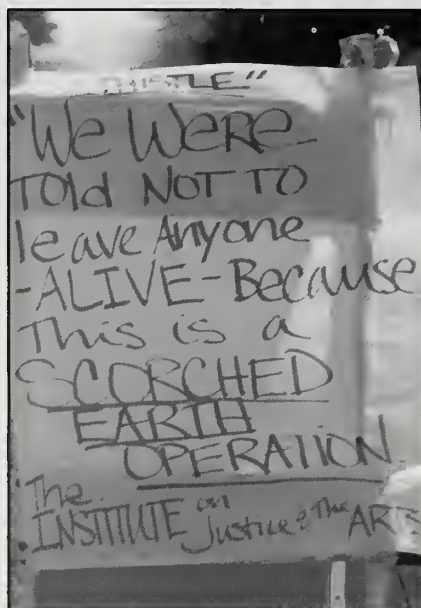 "We WERE
TOld NOT TO
leave Anyone
-ALIVE-Because
This is a
SCORCHED
EARTH
OPERATION
The
INSTITUTE on Justice & The ARTS